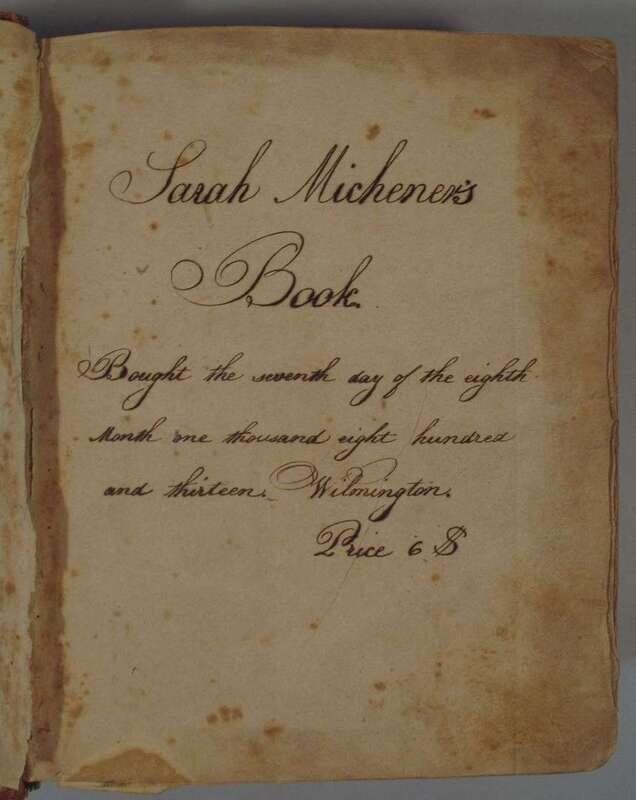 Sarah Michener's
Book.
Bought the seventh day of the eighth
Month one thousand eight hundred
and thirteen. Wilmington.
Price 6 $